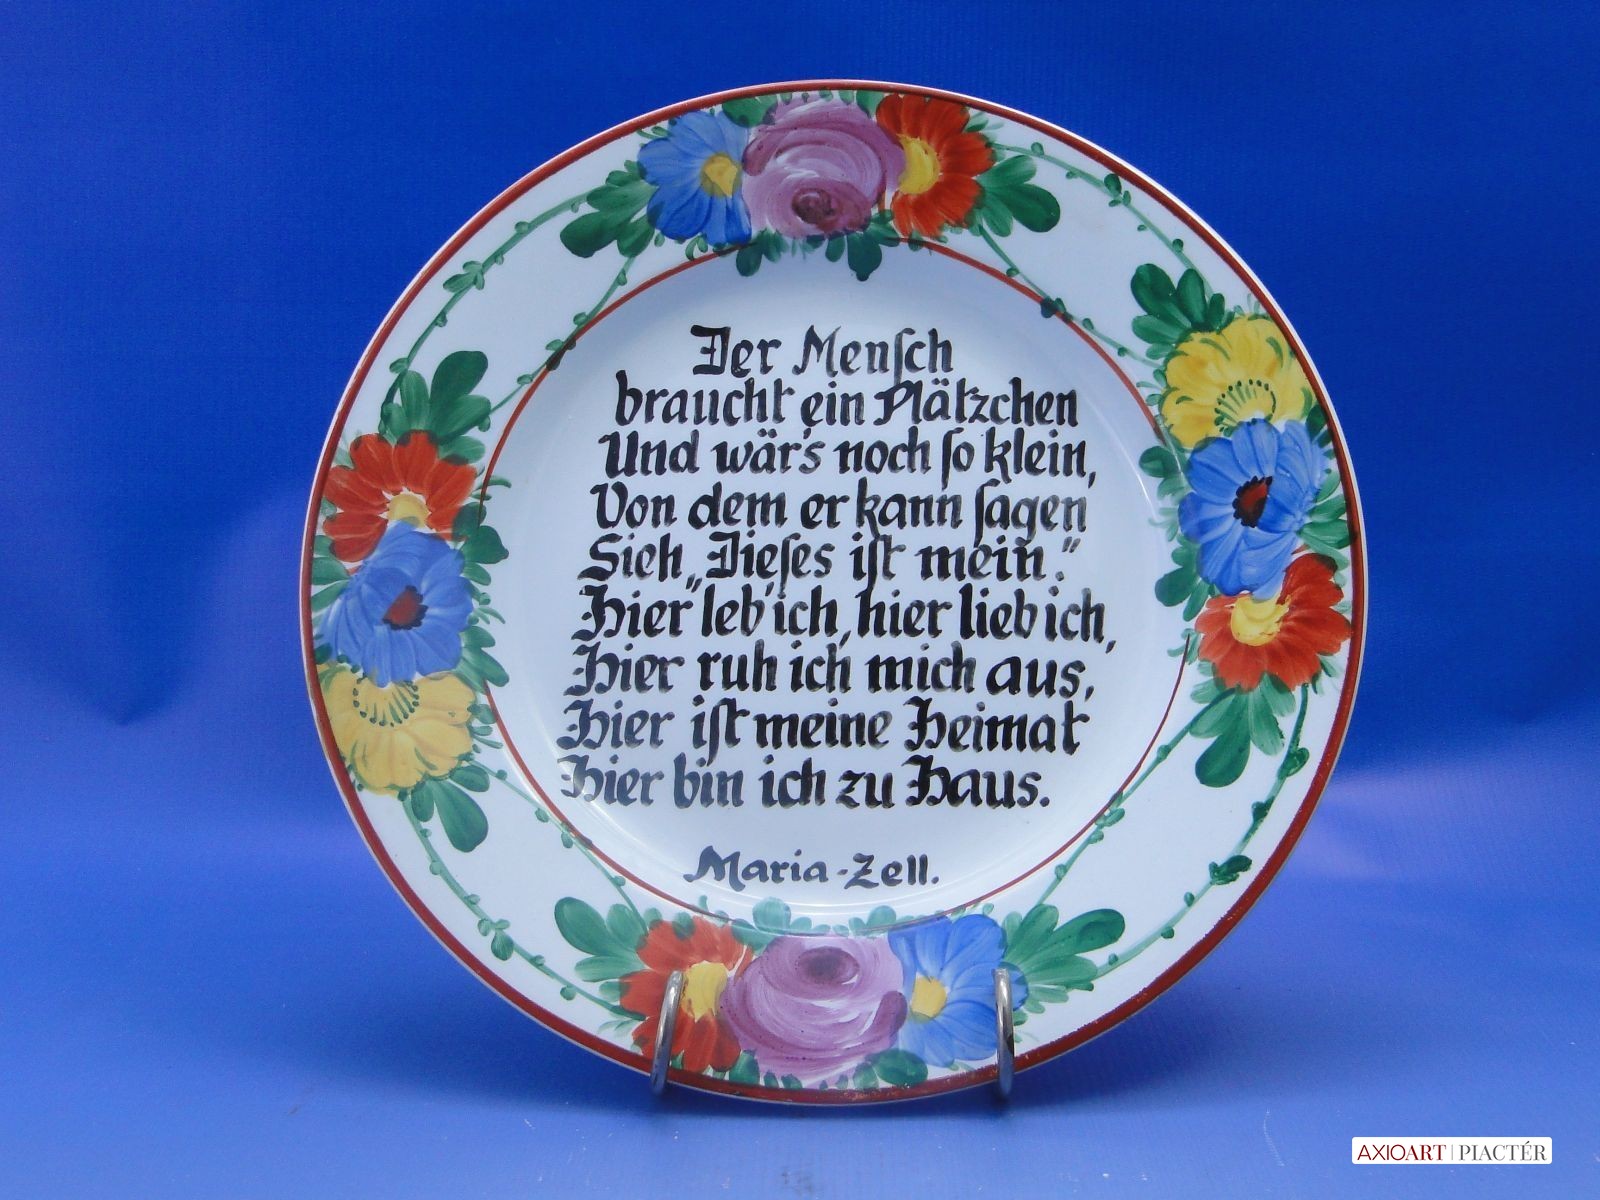 Der Menſch
braucht ein Plätzchen
Und wär's noch ſo klein,
Von dem er kann ſagen
Sieh „Dieſes iſt mein.“
Hier leb' ich, hier lieb ich,
Hier ruh ich mich aus,
Hier iſt meine Heimat
Hier bin ich zu Haus.
Maria-Zell.
AXIOART | PIACTÉR